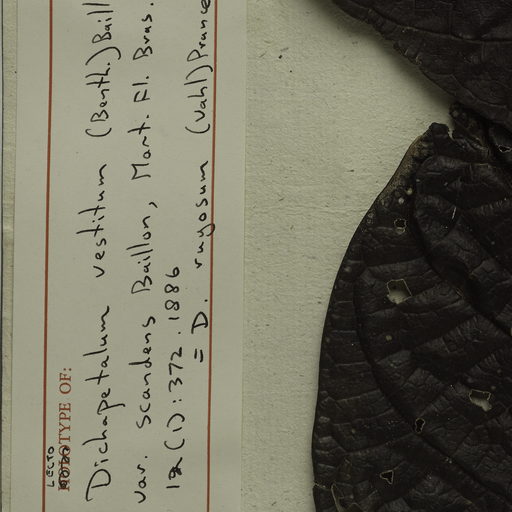 LECTO
HOLOTYPE OF:
Dichapetalum vestitum (Benth.) Baill
var. scandens Baillon, Mart. Fl. Bras.
12(1): 372. 1886
= D. rugosum (Vahl) Prance